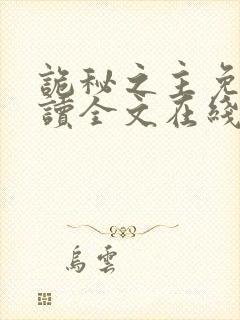 詭秘之主免
讀全文在綫
烏雲